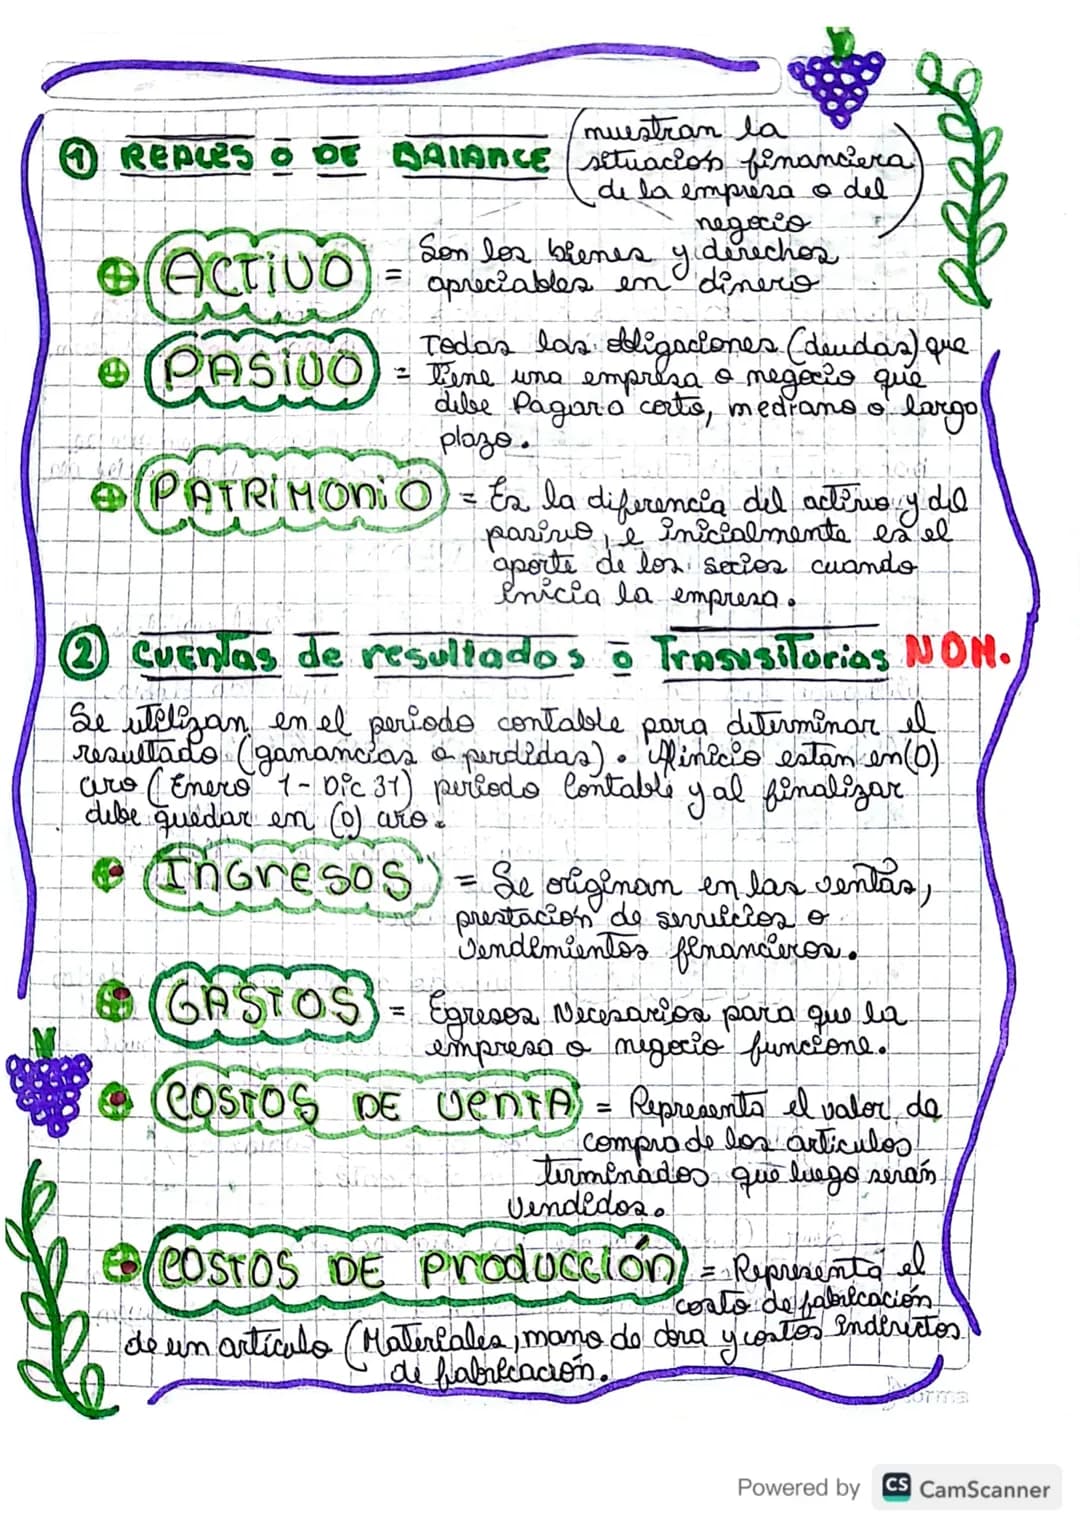 (muestran la
① REALES o DE BALANCE situación financiera
de la empresa o del
negocio)
ACTIVO = Son los bienes y derechos
apreciables en dinero
Todas las obligaciones (deudas) que
PASIVO = tiene una empresa o negocio que
debe Pagar a corto, mediano o largo
plazo.
PATRIMONIO = Es la diferencia del activo y del
pasivo, e inicialmente es el
aporte de los socios cuando
inicia la empresa.
② CUENTAS de resultados o Transitorias NOM.
Se utilizan en el periodo contable para determinar el
resultado (ganancias o perdidas). Al inicio estan en (0)
cero (Enero 1 - Dic 31) periodo Contable y al finalizar
debe quedar en (0) cero.
INGresos = Se originan en las ventas,
prestación de servicios o
rendimientos financieros.
GASTOS = Egresos Necesarios para que la
empresa o negocio funcione.
COSTOS DE VENTA = Representa el valor de
compra de los artículos
terminados que luego serán
vendidos.
COSTOS DE Producción = Representa el
costo de fabricación
de un artículo (Materiales, mano de obra y costos Indirectos
de fabricación.
norma
Powered by CS CamScanner